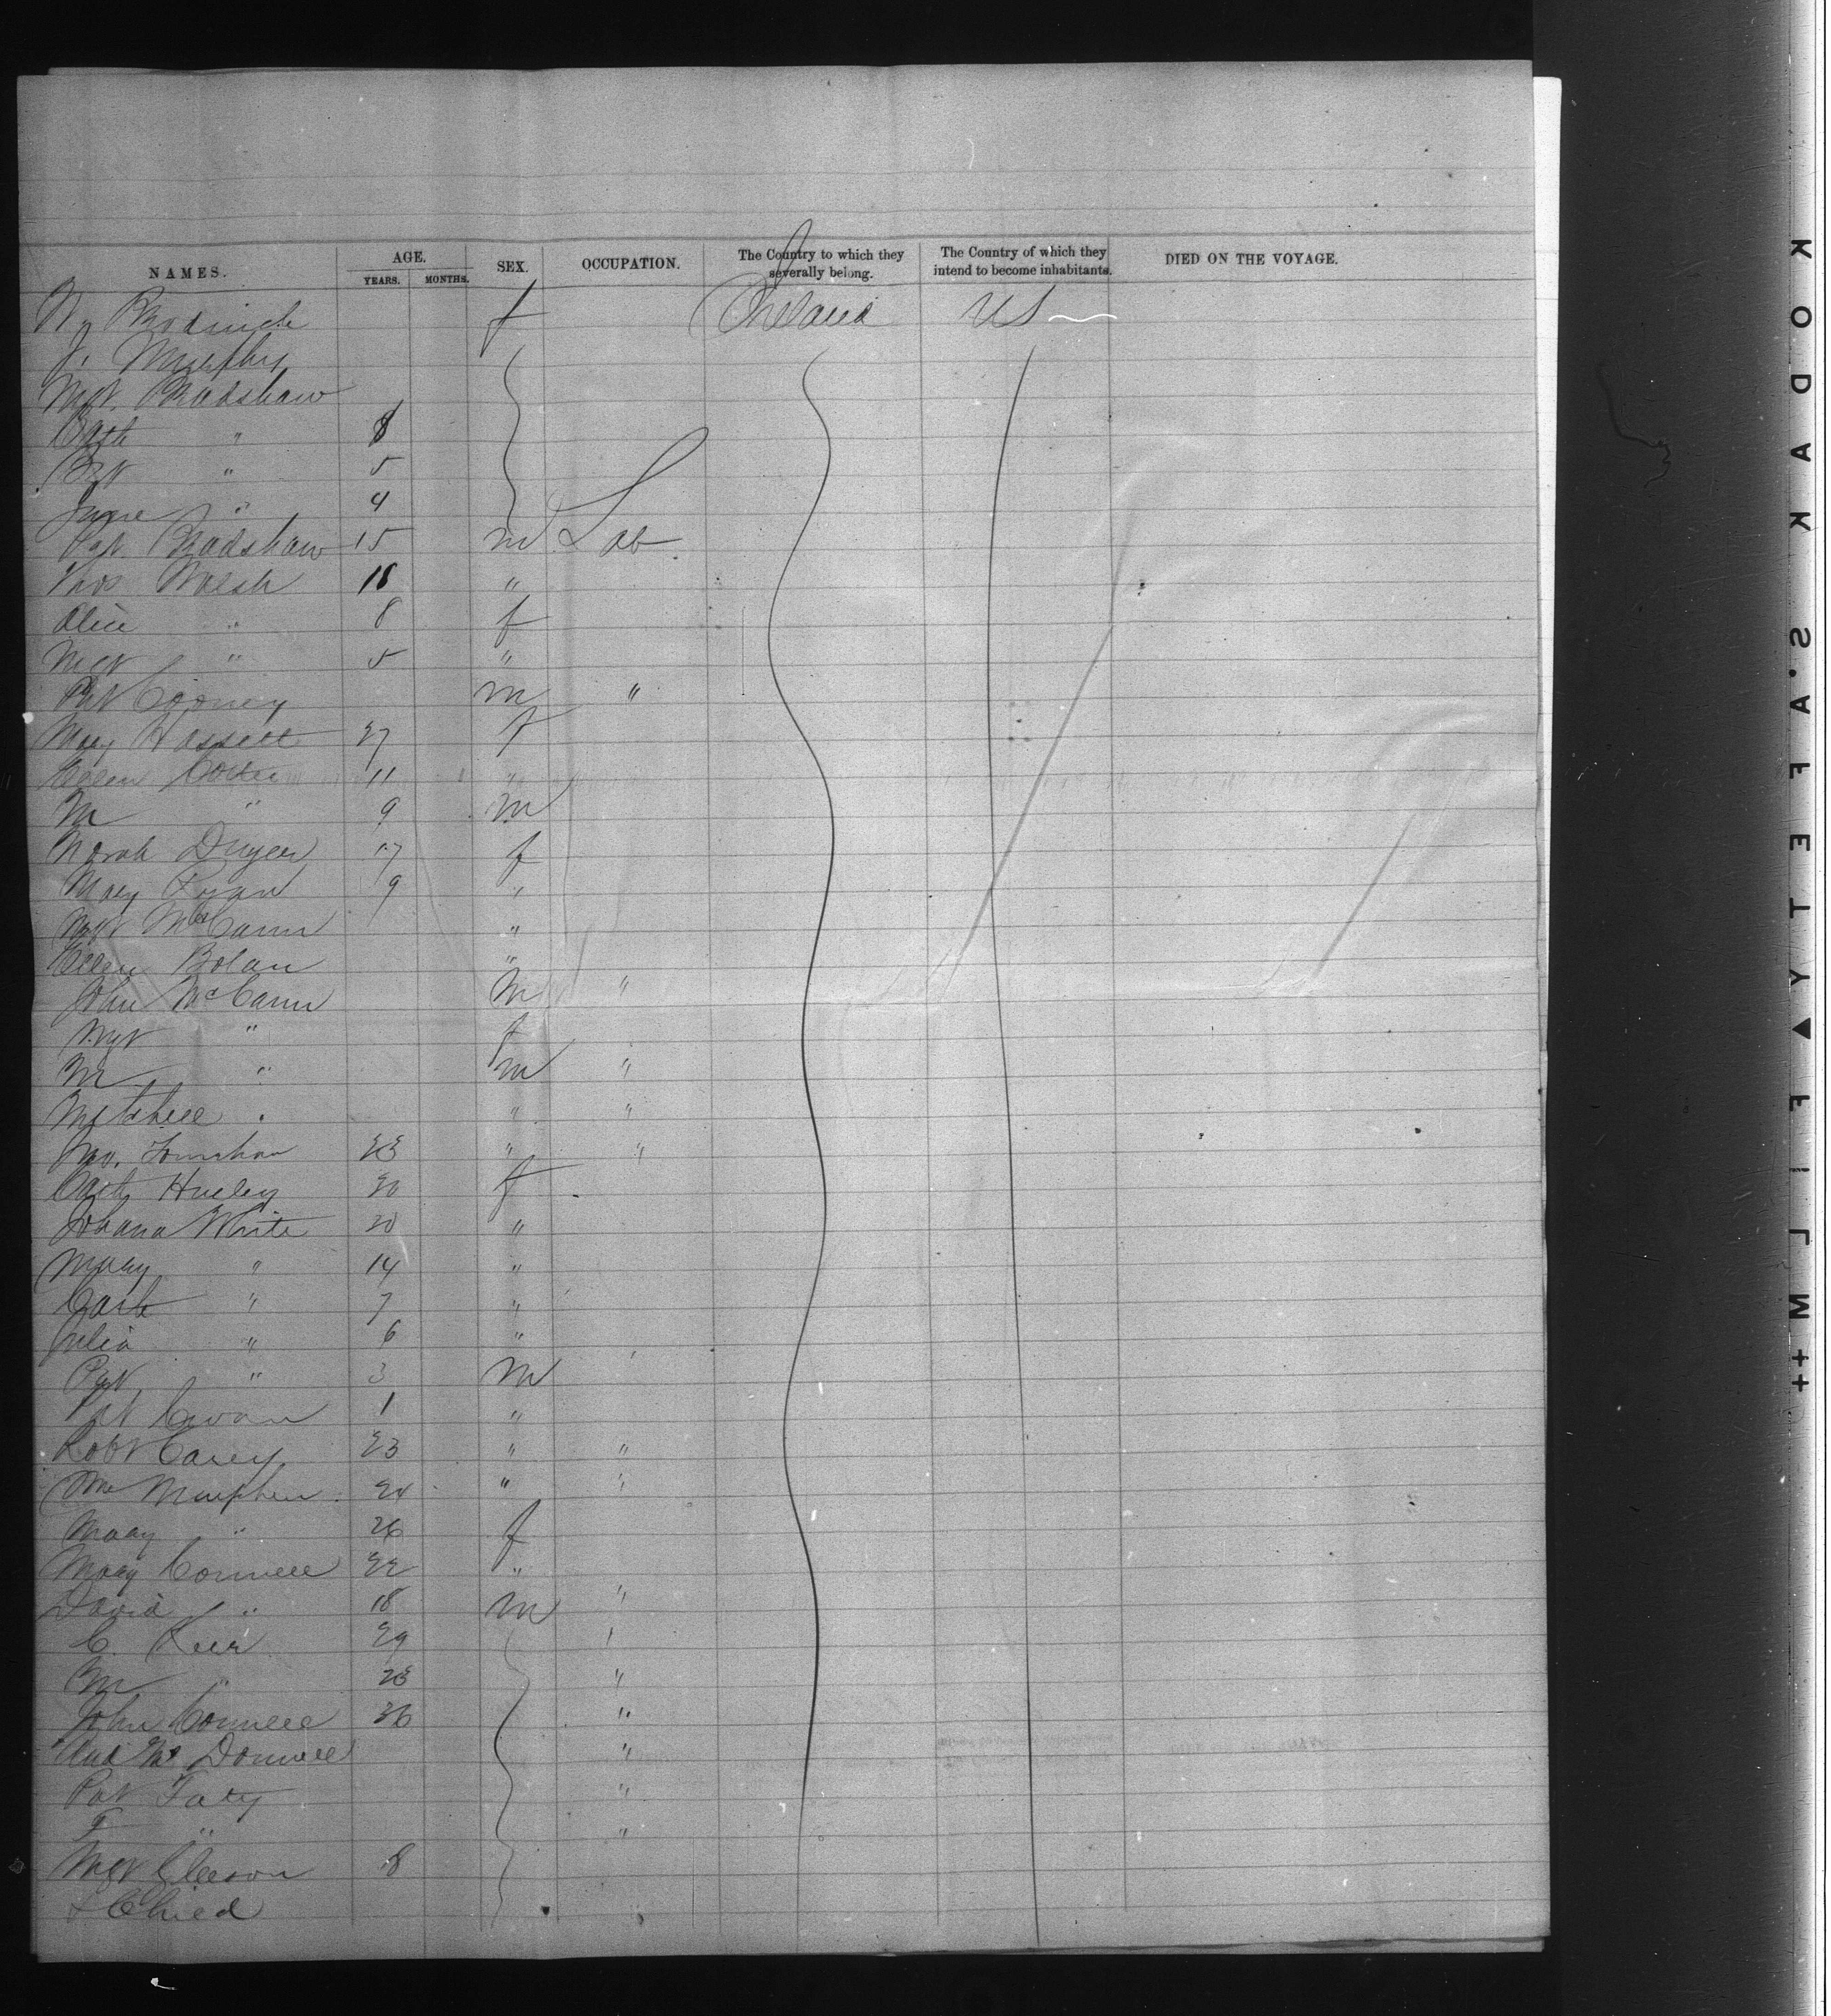 NAMES. AGE. YEARS. MONTHS. SEX. OCCUPATION. The Country to which they severally belong. The Country of which they intend to become inhabitants. DIED ON THE VOYAGE.
f Ireland US
J. Murphy
Mgt. Bradshaw
Cath " 8
Bgt " 5
Jane " 4
Pat Bradshaw 15 m Lab
Thos Walsh 18 "
Alice " 8 f
Mgt " 5 "
Pat Cooney m "
Mary Hassett 27 f
Ellen 11 "
M " 9 m
Norah Dwyer 17 f
Mary Ryan 9 "
Mgt McCann "
Ellen Bolan "
John McCann m "
Mgt " f
M " m "
Mitchell " " "
23 " "
Cath Hurley 20 f
Johana White 20 "
Mary " 14 "
Cath " 7 "
Julia " 6 "
Pat " 3 m
Pat 1 "
Robt Carey 23 " "
24 " "
Mary " 26 f
Mary Connell 22 "
David " 18 m "
C. 29 "
M " 23 "
John Connell 26 "
And McDonnell "
Pat Faty "
F " "
Mgt Gleeson 18
+ Child
KODAK S.A.F.E.T.Y ▲ FILM ++